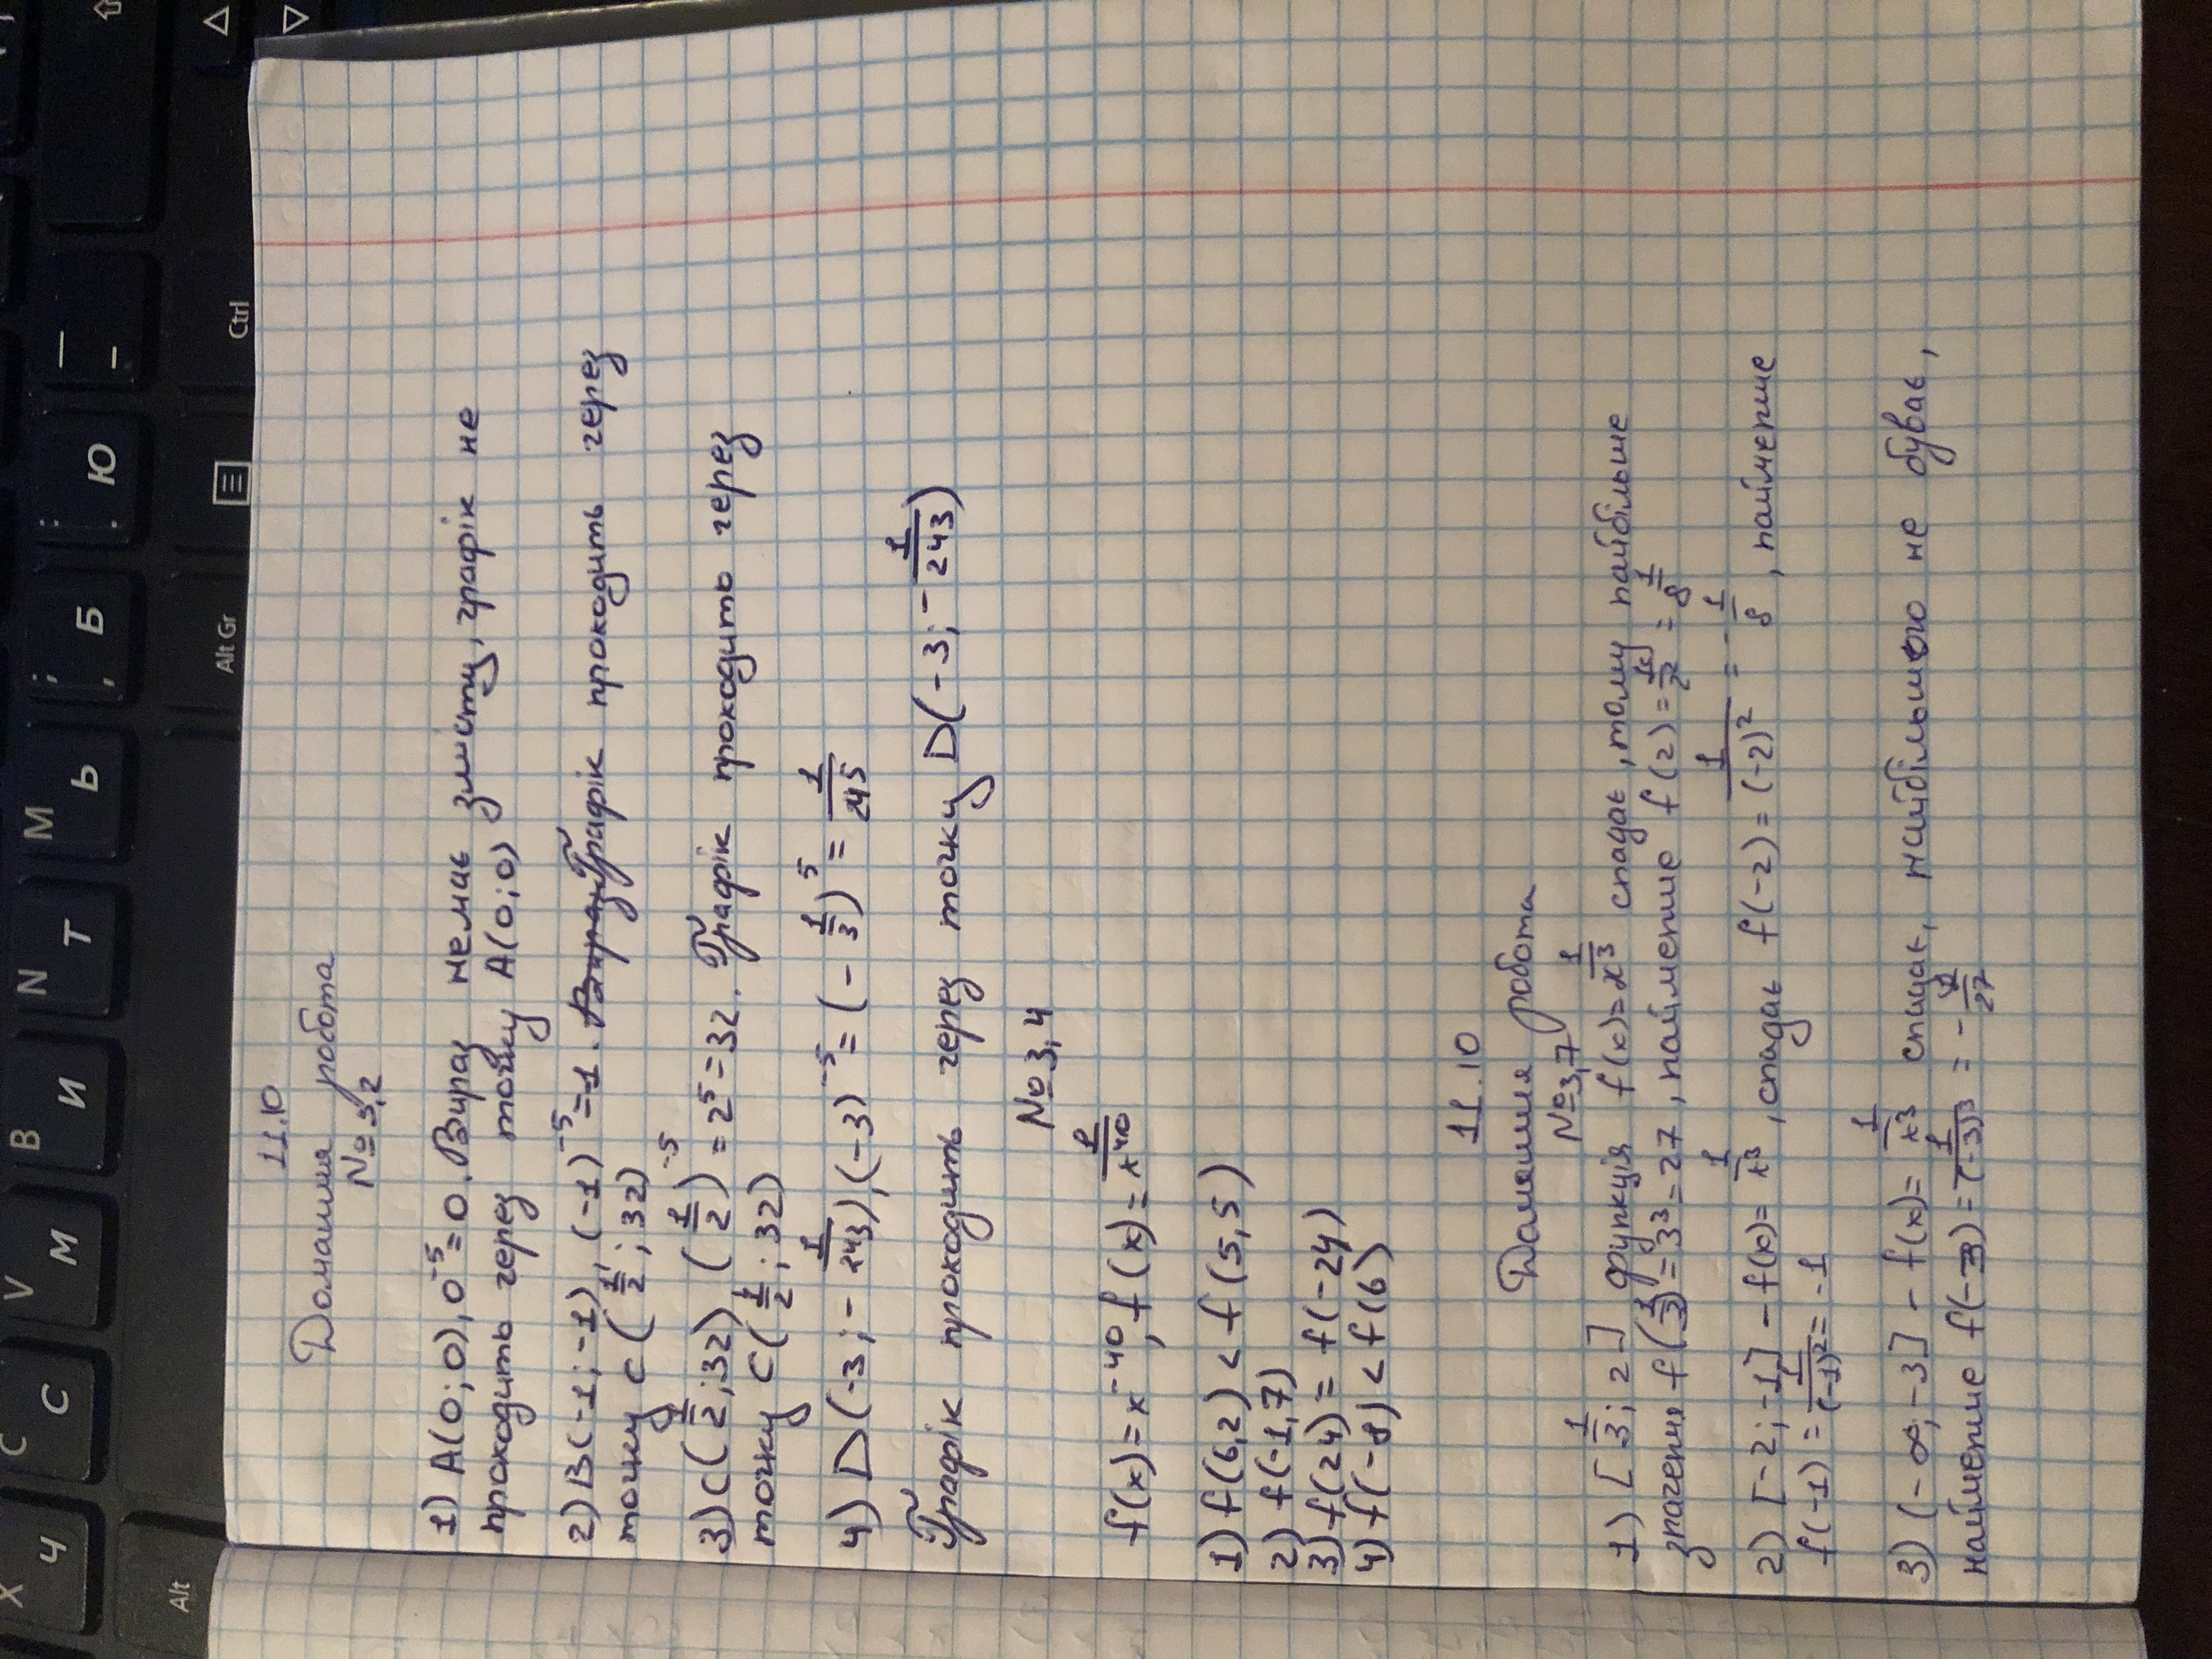 11.10
Домашня робота
№ 3,2
1) A(0;0), 0⁻⁵=0. Вираз немає змісту, графік не
проходить через точку A(0;0)
2) B(-1;-1), (-1)⁻⁵=-1. Графік проходить через
точку C(1/2; 32)
3) C(1/2;32), (1/2)⁻⁵=2⁵=32. Графік проходить через
точку C(1/2; 32)
4) D(-3;-1/243), (-3)⁻⁵=(-1/3)⁵=1/245
Графік проходить через точку D(-3;-1/243)
№ 3,4
f(x)=x⁻⁴⁰, f(x)=1/x⁴⁰
1) f(6,2) < f(5,5)
2) f(-1,7)
3) f(24) = f(-24)
4) f(-8) < f(6)
11.10
Домашня робота
№ 3,7
1) [1/3; 2] функція f(x)=1/x³ спадає, тому найбільше
значення f(1/3)=3³=27, найменше f(2)=1/2³=1/8
2) [-2;-1] - f(x)=1/x³, спадає f(-2)=1/(-2)²=-1/8, найменше
f(-1)=1/(-1)²=-1
3) (-∞;-3] - f(x)=1/x³ спадає, найбільшого не буває,
найменше f(-3)=1/(-3)³=-1/27
Alt
Alt Gr
Ctrl
X Ч
C С
V М
B И
N Т
M Ь
; , Б
: . Ю
_ -